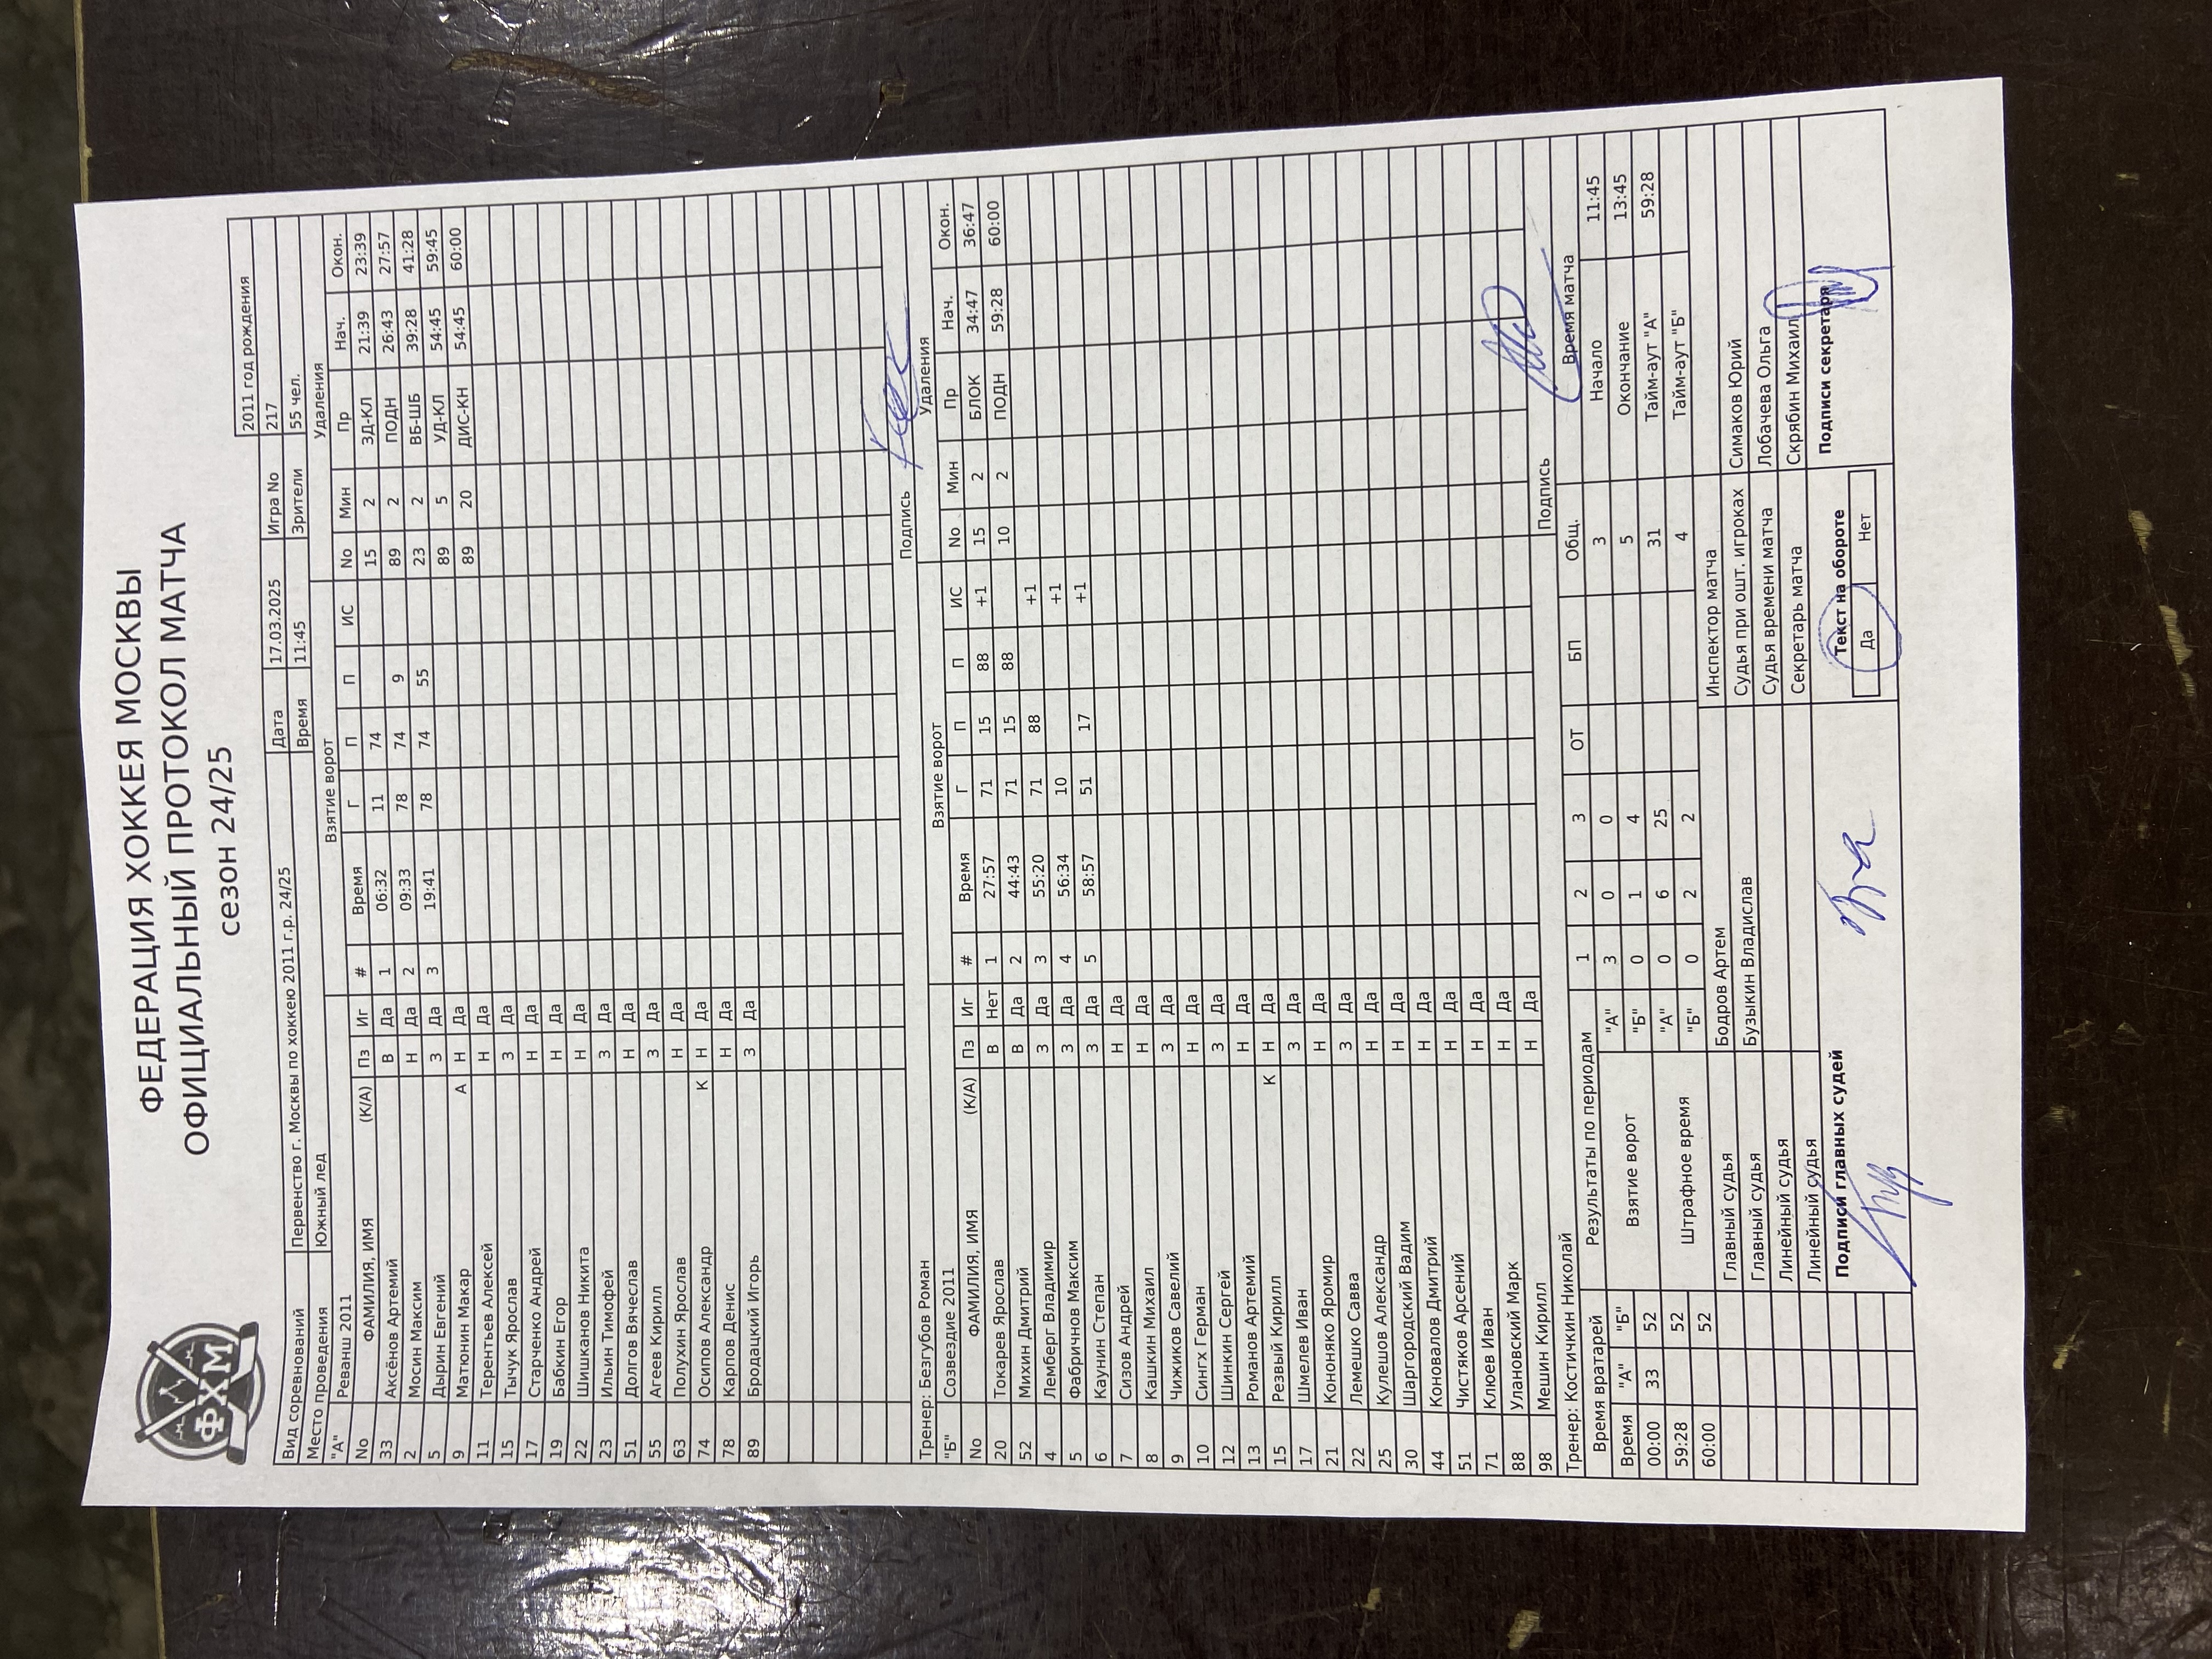 ФХМ
ФЕДЕРАЦИЯ ХОККЕЯ МОСКВЫ
ОФИЦИАЛЬНЫЙ ПРОТОКОЛ МАТЧА
сезон 24/25
2011 год рождения
Вид соревнований Первенство г. Москвы по хоккею 2011 г.р. 24/25 Дата 17.03.2025 Игра No 217
Место проведения Южный лед Время 11:45 Зрители 55 чел.
"А" Реванш 2011 Взятие ворот Удаления
No ФАМИЛИЯ, ИМЯ (К/А) Пз Иг # Время Г П П ИС No Мин Пр Нач. Окон.
33 Аксёнов Артемий В Да 1 06:32 11 74 15 2 ЗД-КЛ 21:39 23:39
2 Мосин Максим Н Да 2 09:33 78 74 9 89 2 ПОДН 26:43 27:57
5 Дырин Евгений З Да 3 19:41 78 74 55 23 2 ВБ-ШБ 39:28 41:28
9 Матюнин Макар А Н Да 89 5 УД-КЛ 54:45 59:45
11 Терентьев Алексей Н Да 89 20 ДИС-КН 54:45 60:00
15 Тычук Ярослав З Да
17 Старченко Андрей Н Да
19 Бабкин Егор Н Да
22 Шишканов Никита Н Да
23 Ильин Тимофей З Да
51 Долгов Вячеслав Н Да
55 Агеев Кирилл З Да
63 Полухин Ярослав Н Да
74 Осипов Александр К Н Да
78 Карпов Денис Н Да
89 Бродацкий Игорь З Да
Тренер: Безгубов Роман Подпись
"Б" Созвездие 2011 Взятие ворот Удаления
No ФАМИЛИЯ, ИМЯ (К/А) Пз Иг # Время Г П П ИС No Мин Пр Нач. Окон.
20 Токарев Ярослав В Нет 1 27:57 71 15 88 +1 15 2 БЛОК 34:47 36:47
52 Михин Дмитрий В Да 2 44:43 71 15 88 10 2 ПОДН 59:28 60:00
4 Лемберг Владимир З Да 3 55:20 71 88 +1
5 Фабричнов Максим З Да 4 56:34 10 +1
6 Каунин Степан З Да 5 58:57 51 17 +1
7 Сизов Андрей Н Да
8 Кашкин Михаил Н Да
9 Чижиков Савелий З Да
10 Сингх Герман Н Да
12 Шинкин Сергей З Да
13 Романов Артемий Н Да
15 Резвый Кирилл К Н Да
17 Шмелев Иван З Да
21 Кононяко Яромир Н Да
22 Лемешко Савва З Да
25 Кулешов Александр Н Да
30 Шаргородский Вадим Н Да
44 Коновалов Дмитрий Н Да
51 Чистяков Арсений Н Да
71 Клюев Иван Н Да
88 Улановский Марк Н Да
98 Мешин Кирилл Н Да
Тренер: Костичкин Николай Подпись
Время вратарей Результаты по периодам 1 2 3 ОТ БП Общ. Время матча
Время "А" "Б" Взятие ворот "А" 3 0 0 3 Начало 11:45
00:00 33 52 "Б" 0 1 4 5 Окончание 13:45
59:28 52 Штрафное время "А" 0 6 25 31 Тайм-аут "А" 59:28
60:00 52 "Б" 0 2 2 4 Тайм-аут "Б"
Главный судья Бодров Артем Инспектор матча
Главный судья Бузыкин Владислав Судья при ошт. игроках Симаков Юрий
Линейный судья Судья времени матча Лобачева Ольга
Линейный судья Секретарь матча Скрябин Михаил
Подписи главных судей Текст на обороте Подписи секретаря
Да Нет